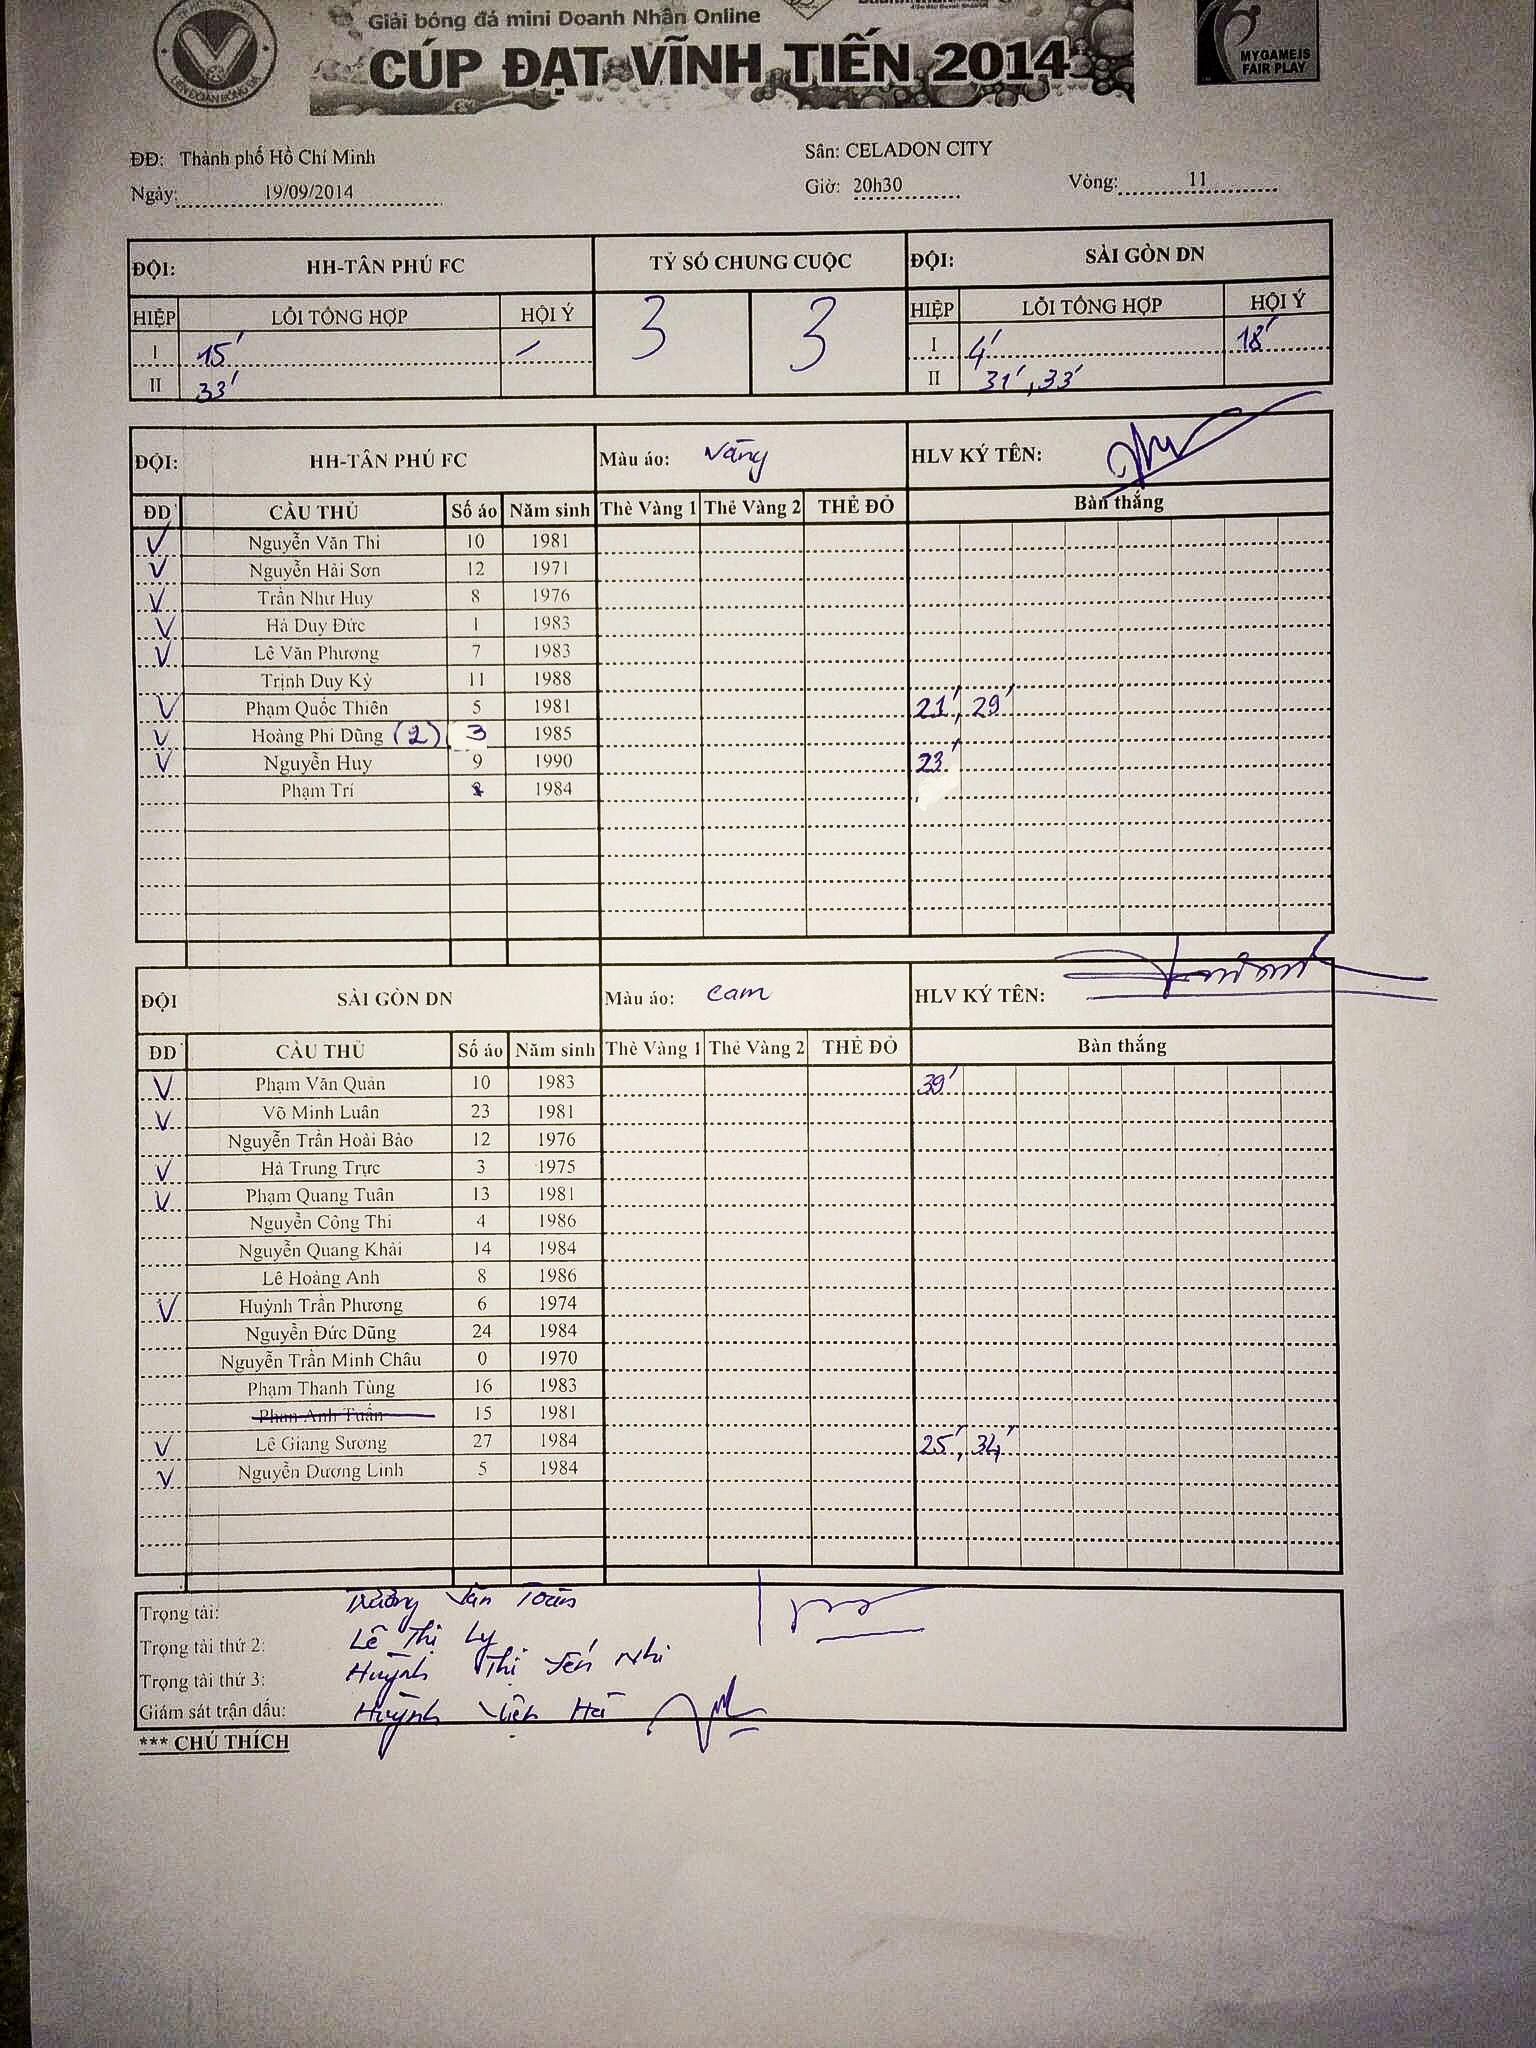 LIÊN ĐOÀN BÓNG ĐÁ
Giải bóng đá mini Doanh Nhân Online
CÚP ĐẠT VĨNH TIẾN 2014
MY GAME IS
FAIR PLAY
ĐĐ: Thành phố Hồ Chí Minh Sân: CELADON CITY
Ngày: 19/09/2014 Giờ: 20h30 Vòng: 11
ĐỘI: HH-TÂN PHÚ FC TỶ SỐ CHUNG CUỘC ĐỘI: SÀI GÒN DN
HIỆP LỖI TỔNG HỢP HỘI Ý 3 3 HIỆP LỖI TỔNG HỢP HỘI Ý
I 15' / I 4' 18'
II 33' II 31', 33'
ĐỘI: HH-TÂN PHÚ FC Màu áo: Vàng HLV KÝ TÊN:
ĐD CẦU THỦ Số áo Năm sinh Thẻ Vàng 1 Thẻ Vàng 2 THẺ ĐỎ Bàn thắng
V Nguyễn Văn Thi 10 1981
V Nguyễn Hải Sơn 12 1971
V Trần Như Huy 8 1976
V Hà Duy Đức 1 1983
V Lê Văn Phương 7 1983
Trịnh Duy Kỳ 11 1988
V Phạm Quốc Thiên 5 1981 21', 29'
V Hoàng Phi Dũng (2) 3 1985
V Nguyễn Huy 9 1990 23'
Phạm Trí 1984
ĐỘI SÀI GÒN DN Màu áo: Cam HLV KÝ TÊN:
ĐD CẦU THỦ Số áo Năm sinh Thẻ Vàng 1 Thẻ Vàng 2 THẺ ĐỎ Bàn thắng
V Phạm Văn Quản 10 1983 39'
V Võ Minh Luân 23 1981
Nguyễn Trần Hoài Bảo 12 1976
V Hà Trung Trực 3 1975
V Phạm Quang Tuân 13 1981
Nguyễn Công Thi 4 1986
Nguyễn Quang Khải 14 1984
Lê Hoàng Anh 8 1986
V Huỳnh Trần Phương 6 1974
Nguyễn Đức Dũng 24 1984
Nguyễn Trần Minh Châu 0 1970
Phạm Thanh Tùng 16 1983
Phan Anh Tuấn 15 1981
V Lê Giang Sương 27 1984 25', 34'
V Nguyễn Dương Linh 5 1984
Trọng tài: Trương Văn Toản
Trọng tài thứ 2: Lê Thị Ly
Trọng tài thứ 3: Huỳnh Thị Yến Nhi
Giám sát trận đấu: Huỳnh Viện Hà
*** CHÚ THÍCH